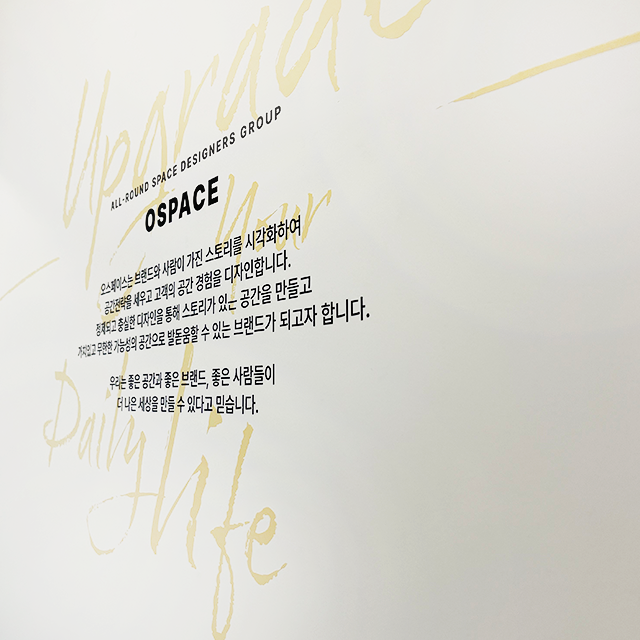 Upgrade
Your
Daily life
ALL-ROUND SPACE DESIGNERS GROUP
OSPACE
오스페이스는 브랜드와 사람이 가진 스토리를 시각화하여
공간전략을 세우고 고객의 공간 경험을 디자인합니다.
정제되고 충실한 디자인을 통해 스토리가 있는 공간을 만들고
가치있고 무한한 가능성의 공간으로 발돋움할 수 있는 브랜드가 되고자 합니다.
우리는 좋은 공간과 좋은 브랜드, 좋은 사람들이
더 나은 세상을 만들 수 있다고 믿습니다.